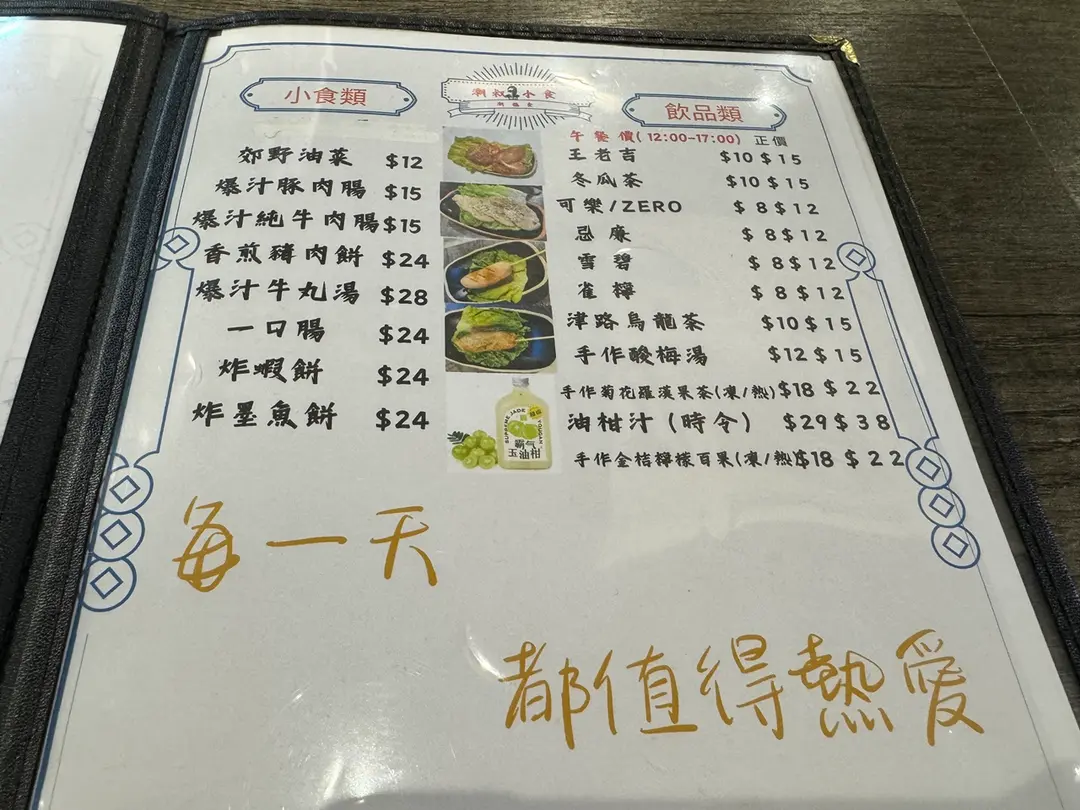 小食類
郊野油菜 $12
爆汁豚肉腸 $15
爆汁純牛肉腸 $15
香煎豬肉餅 $24
爆汁牛丸湯 $28
一口腸 $24
炸蝦餅 $24
炸墨魚餅 $24
潮叔 小食
SUPREME JADE
霸气
玉油柑
飲品類
午餐價(12:00-17:00) 正價
王老吉 $10 $15
冬瓜茶 $10 $15
可樂/ZERO $8 $12
忌廉 $8 $12
雪碧 $8 $12
雀檸 $8 $12
津路烏龍茶 $10 $15
手作酸梅湯 $12 $15
手作菊花羅漢果茶(凍/熱) $18 $22
油柑汁(時令) $29 $38
手作金桔檸檬百果(凍/熱) $18 $22
每一天
都值得熱愛